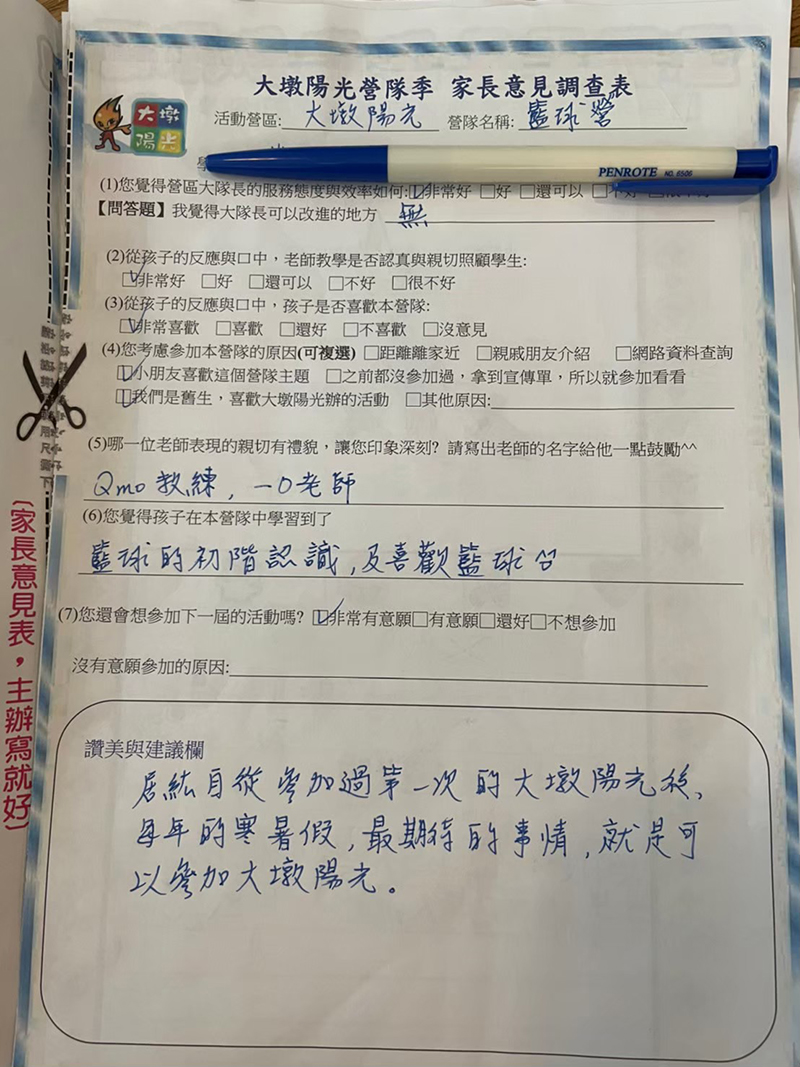 大墩陽光營隊季 家長意見調查表
大墩
陽光
活動營區: 大墩陽光 營隊名稱: 籃球營
PENROTE NO. 6506
(1)您覺得營區大隊長的服務態度與效率如何:☑非常好 □好 □還可以 □不好
【問答題】我覺得大隊長可以改進的地方 無
(2)從孩子的反應與口中，老師教學是否認真與親切照顧學生:
☑非常好 □好 □還可以 □不好 □很不好
(3)從孩子的反應與口中，孩子是否喜歡本營隊:
☑非常喜歡 □喜歡 □還好 □不喜歡 □沒意見
(4)您考慮參加本營隊的原因(可複選) □距離離家近 □親戚朋友介紹 □網路資料查詢
☑小朋友喜歡這個營隊主題 □之前都沒參加過，拿到宣傳單，所以就參加看看
☑我們是舊生，喜歡大墩陽光辦的活動 □其他原因:
(5)哪一位老師表現的親切有禮貌，讓您印象深刻? 請寫出老師的名字給他一點鼓勵^^
Qmo教練，一O老師
(6)您覺得孩子在本營隊中學習到了
籃球的初階認識，及喜歡籃球
(7)您還會想參加下一屆的活動嗎? ☑非常有意願□有意願□還好□不想參加
沒有意願參加的原因:
〔家長意見表，主辦寫就好〕
讚美與建議欄
自從參加過第一次的大墩陽光後、
每年的寒暑假，最期待的事情，就是可
以參加大墩陽光。